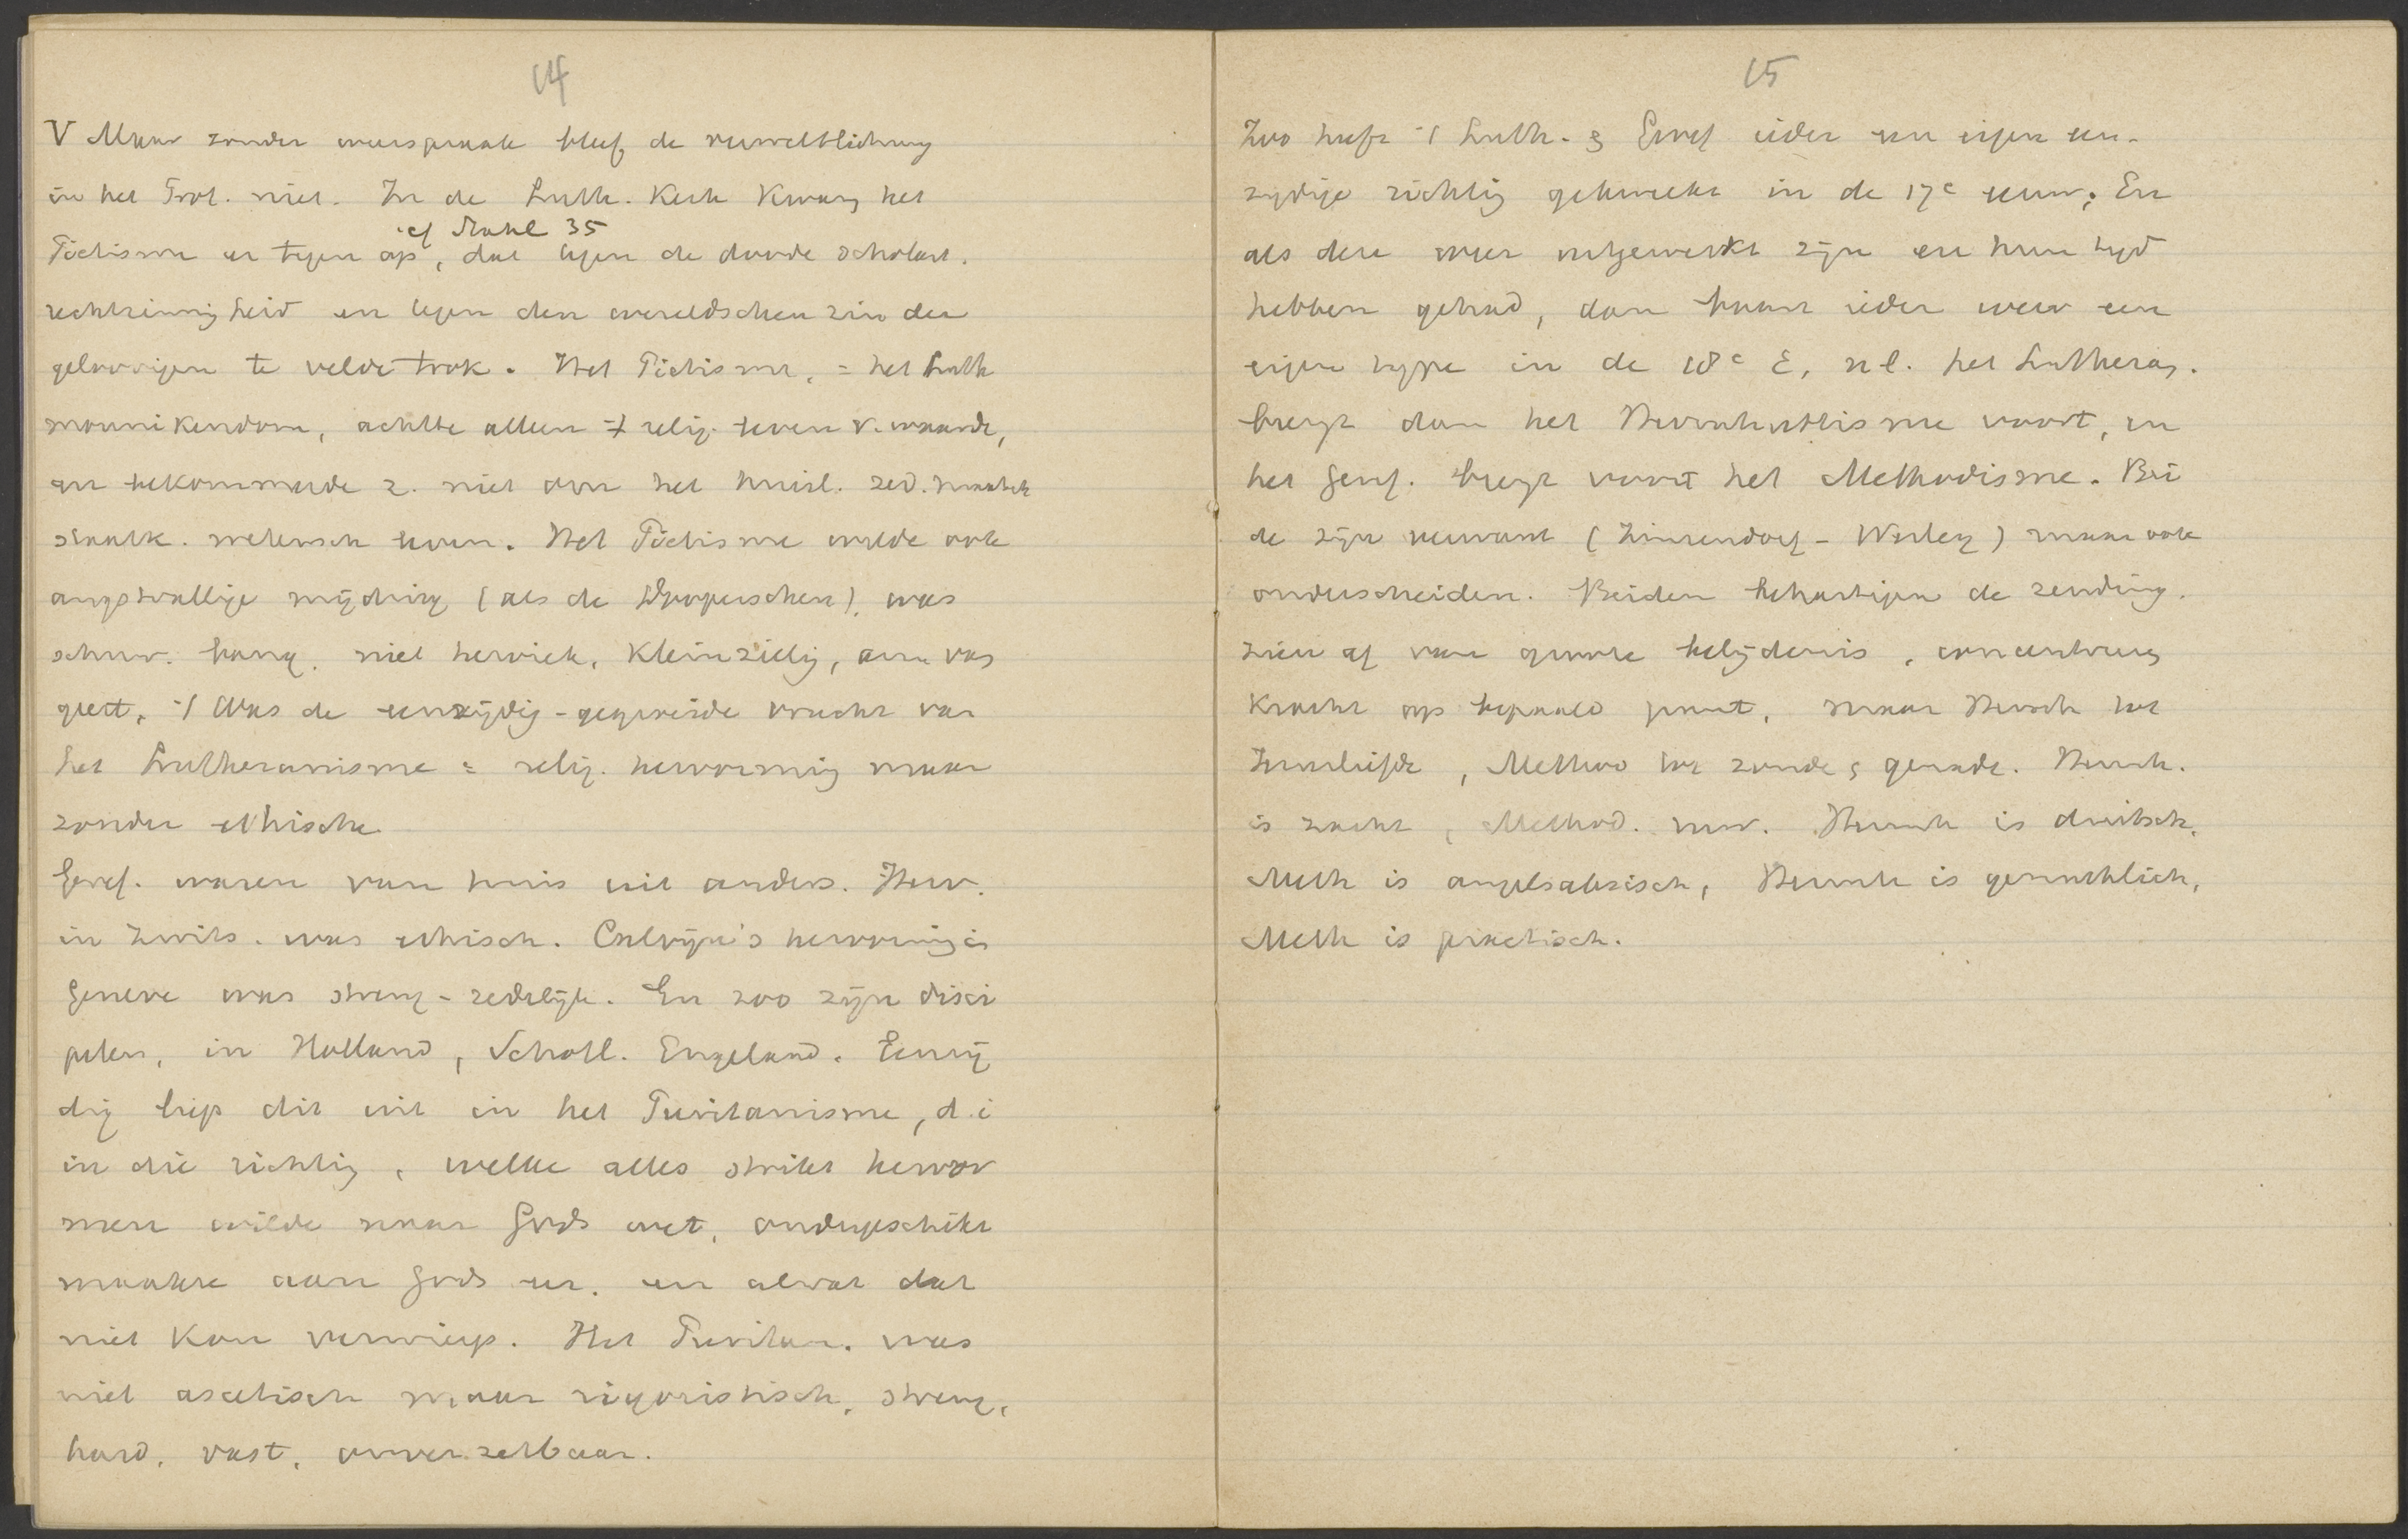 14
V Maar zonder weerspraak bleef de verweltlichung
in het Prot. niet. In de Luth. Kerk Kwam het
cf Stahl 35
Piëtisme er tegen op, dat tegen de doode scholast.
rechtzinnigheid en tegen den wereldschen zin der
geloovigen te velde trok. Het Piëtisme, = het Luth
monnikendom, achtte alleen 't relig. leven v. waarde,
en bekommerde z. niet om het huisl. zed. maatsch
staatk. wetensch leven. Het Piëtisme wilde ook
angstvallige mijding (als de Dooperschen), was
schuw. bang. niet heroiek, Kleinzielig, eng van
geest, 't Was de eenzijdig-gegroeide vrucht van
het Lutheranisme = relig. hervorming maar
zonder ethische
Geref. waren van huis uit anders. Herv.
in Zwits. was ethisch. Calvijn's hervorming in
Geneve was streng-zedelijk. En zoo zijn disci
pelen, in Holland, Schotl. Engeland. Eenzij
dig liep dit uit in het Puritanisme, d.i
in die richting, welke alles strikt hervor
men wilde naar Gods wet, ondergeschikt
maakte aan Gods eer. en alwat dat
niet Kon verwierp. Het Puritan. was
niet ascetisch maar rigoristisch, streng,
hard, vast, onverzetbaar.
15
Zoo heeft 't Luth. & Geref ieder een eigen een-
zijdige richting gekweekt in de 17e eeuw; En
als deze weer uitgewerkt zijn en hun tijd
hebben gehad, dan komt ieder weer een
eigen type in de 18e E, nl. het Lutheran.
brengt dan het Herrnhuttisme voort, en
het Geref. brengt voort het Methodisme. Bei
de zijn verwant (Zinzendorf - Wesley) maar ook
onderscheiden. Beiden behartigen de zending.
zien af van groote belijdenis, concentreeren
Kracht op bepaald punt, maar Herrnh het
Zoenliefde, Method het zonde & genade. Herrnh.
is zacht, Method. ruw. Herrnh is duitsch,
Meth is angelsaksisch, Herrnh is gemuthlich,
Meth is practisch.